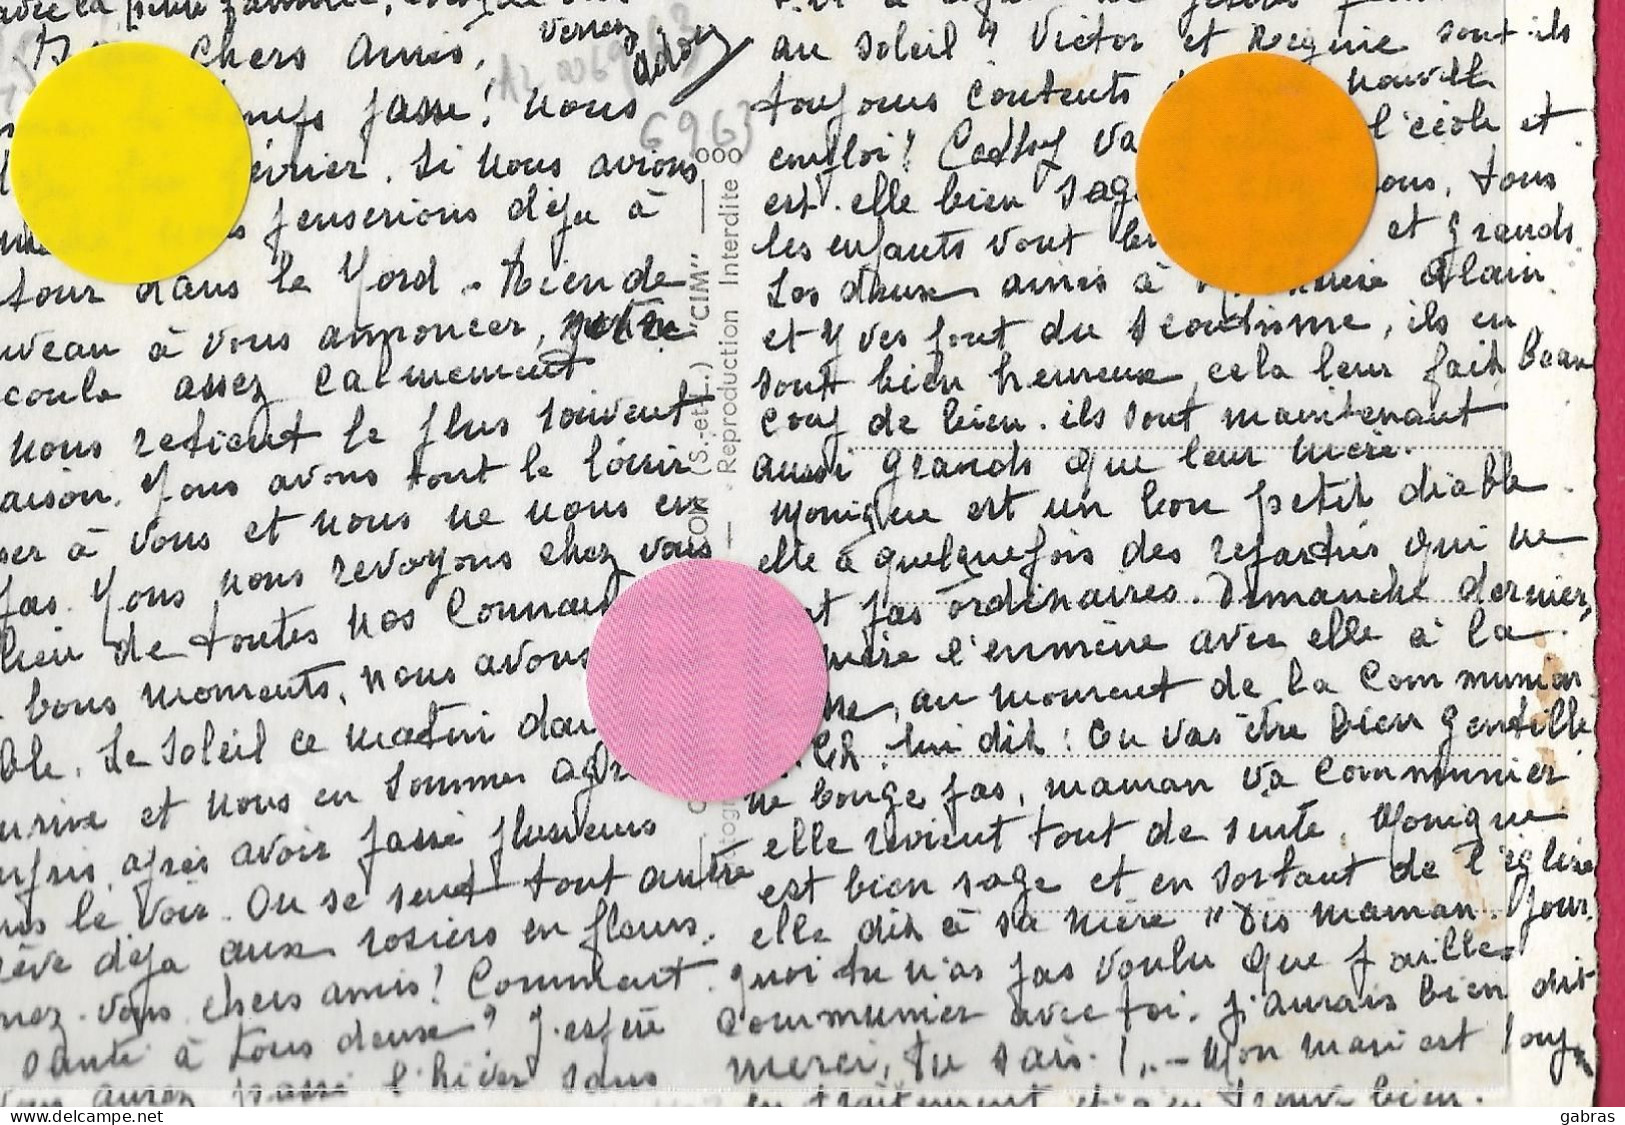 avec la petite famille,
Chers Amis,
Venez
passe! Nous
février. Si nous avions
penserions déjà à
tour dans le Nord. - Rien de
uveau à vous annoncer, notre
coule assez calmement
nous retient le plus souvent
aison. Nous avons tout le loisir
ser à vous et nous ne nous en
pas. Nous nous revoyons chez vous
lieu de toutes nos
bons moments, nous avons
ble. Le soleil ce matin
et nous en sommes
après avoir passé plusieurs
le voir. On se sent tout autre
rêve déjà aux rosiers en fleurs.
nez-vous chers amis! Comment
santé à tous deux? J'espère
aurez passé l'hiver sans
6963
"CIM"
Reproduction Interdite
(S.-et-L.)
au soleil" Victor et Regine sont-ils
toujours contents nouvelle
emploi! va l'école et
est-elle bien sage tous
les enfants vont et grands.
Les deux ainés à Alain
et Yves font du scoutisme, ils en
sont bien heureux, cela leur fait beau
coup de bien. ils sont maintenant
aussi grands que leur mère.
Monique est un bon petit diable.
elle a quelquefois des reparties qui ne
pas ordinaires. Dimanche dernier,
mère l'emmène avec elle à la
, au moment de la Communion
lui dit: Tu vas être bien gentille
ne bouge pas, maman va communier
elle revient tout de suite. Monique
est bien sage et en sortant de l'église
elle dit à sa mère "Dis maman. Pour
quoi tu n'as pas voulu que j'aille
communier avec toi. j'aurais bien dit
merci, tu sais.!.. - Mon mari est touj.
en traitement et s'en trouve bien.
gabras